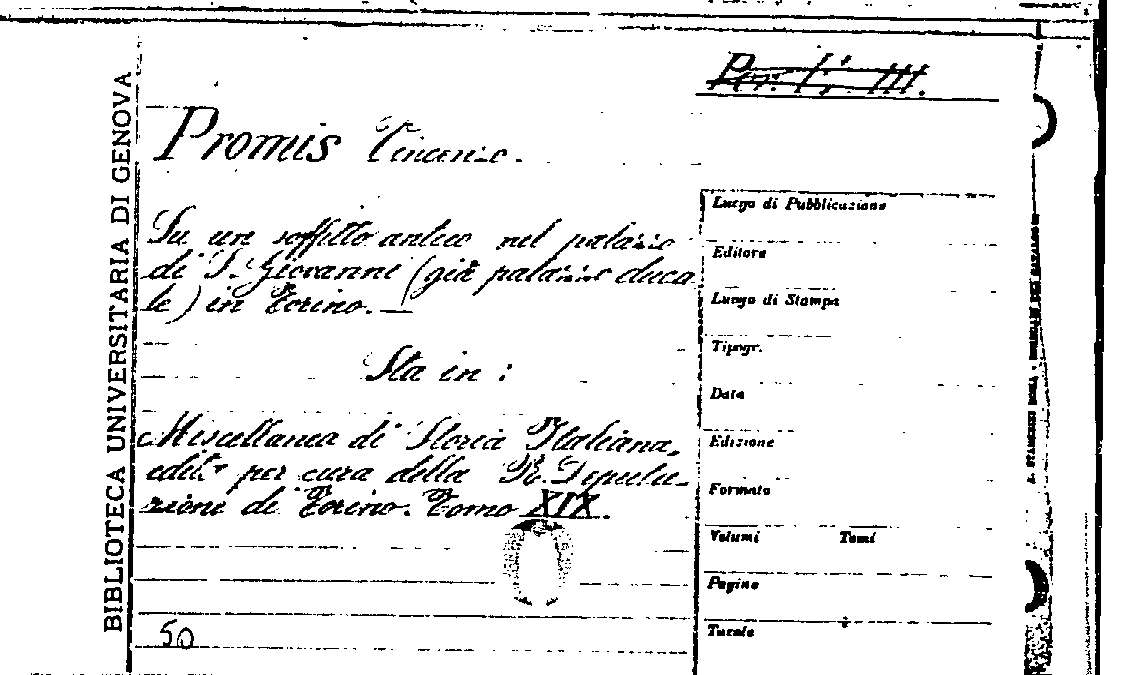 BIBLIOTECA UNIVERSITARIA DI GENOVA
Per. I; III.
Promis Vincenzo.
Su un soffitto antico nel palazzo
di S. Giovanni (già palazzo duca
le) in Torino. —
Sta in :
Miscellanea di Storia Italiana,
edita per cura della R. Deputa-
zione di Torino. Tomo XIX.
50
Luogo di Pubblicazione
Editore
Luogo di Stampa
Tipogr.
Data
Edizione
Formato
Volumi Tomi
Pagine
Tavole